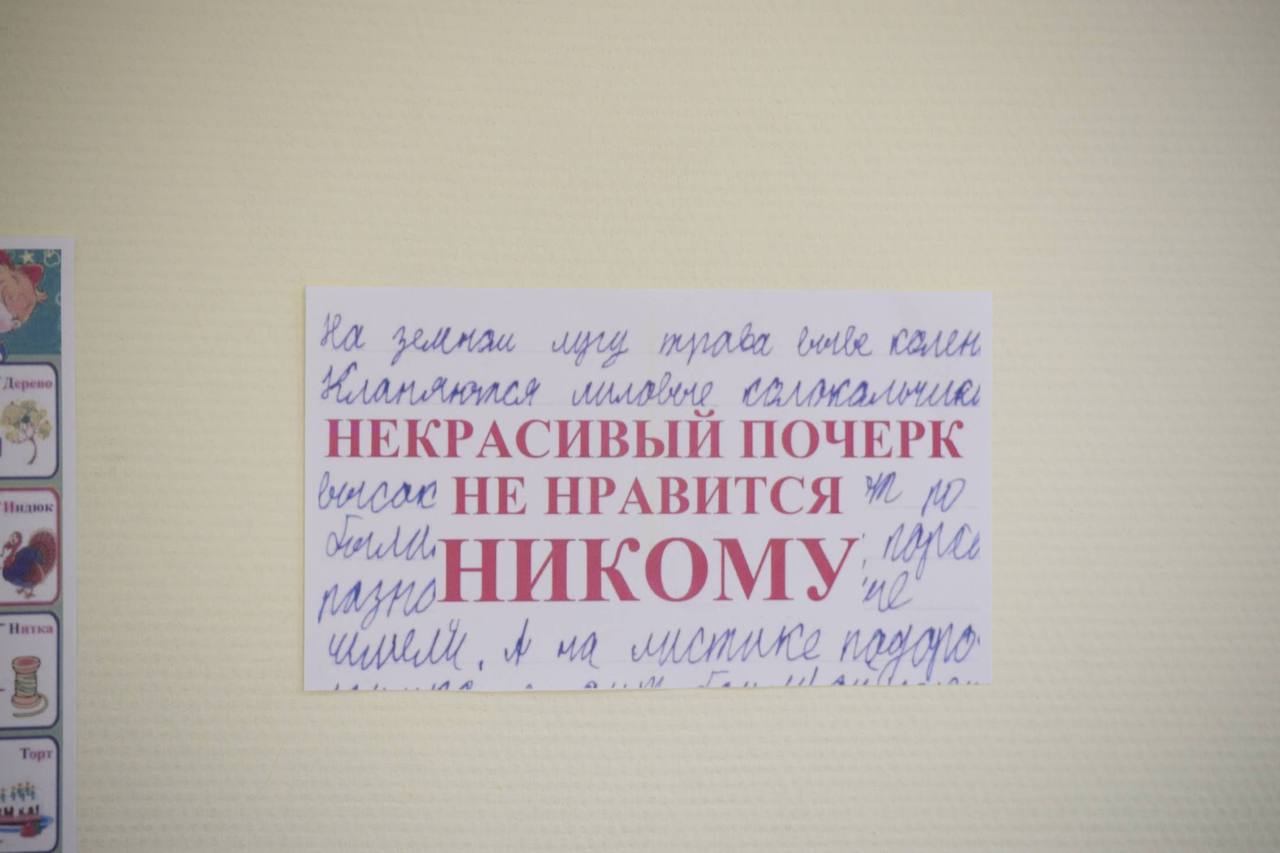 Дерево
Индюк
Нитка
Торт
На земном лугу трава выве колен
Кланяются лиловые колокальчики
НЕКРАСИВЫЙ ПОЧЕРК
высок НЕ НРАВИТСЯ ро
были НИКОМУ
разно ые
шмели. А на листике падоро